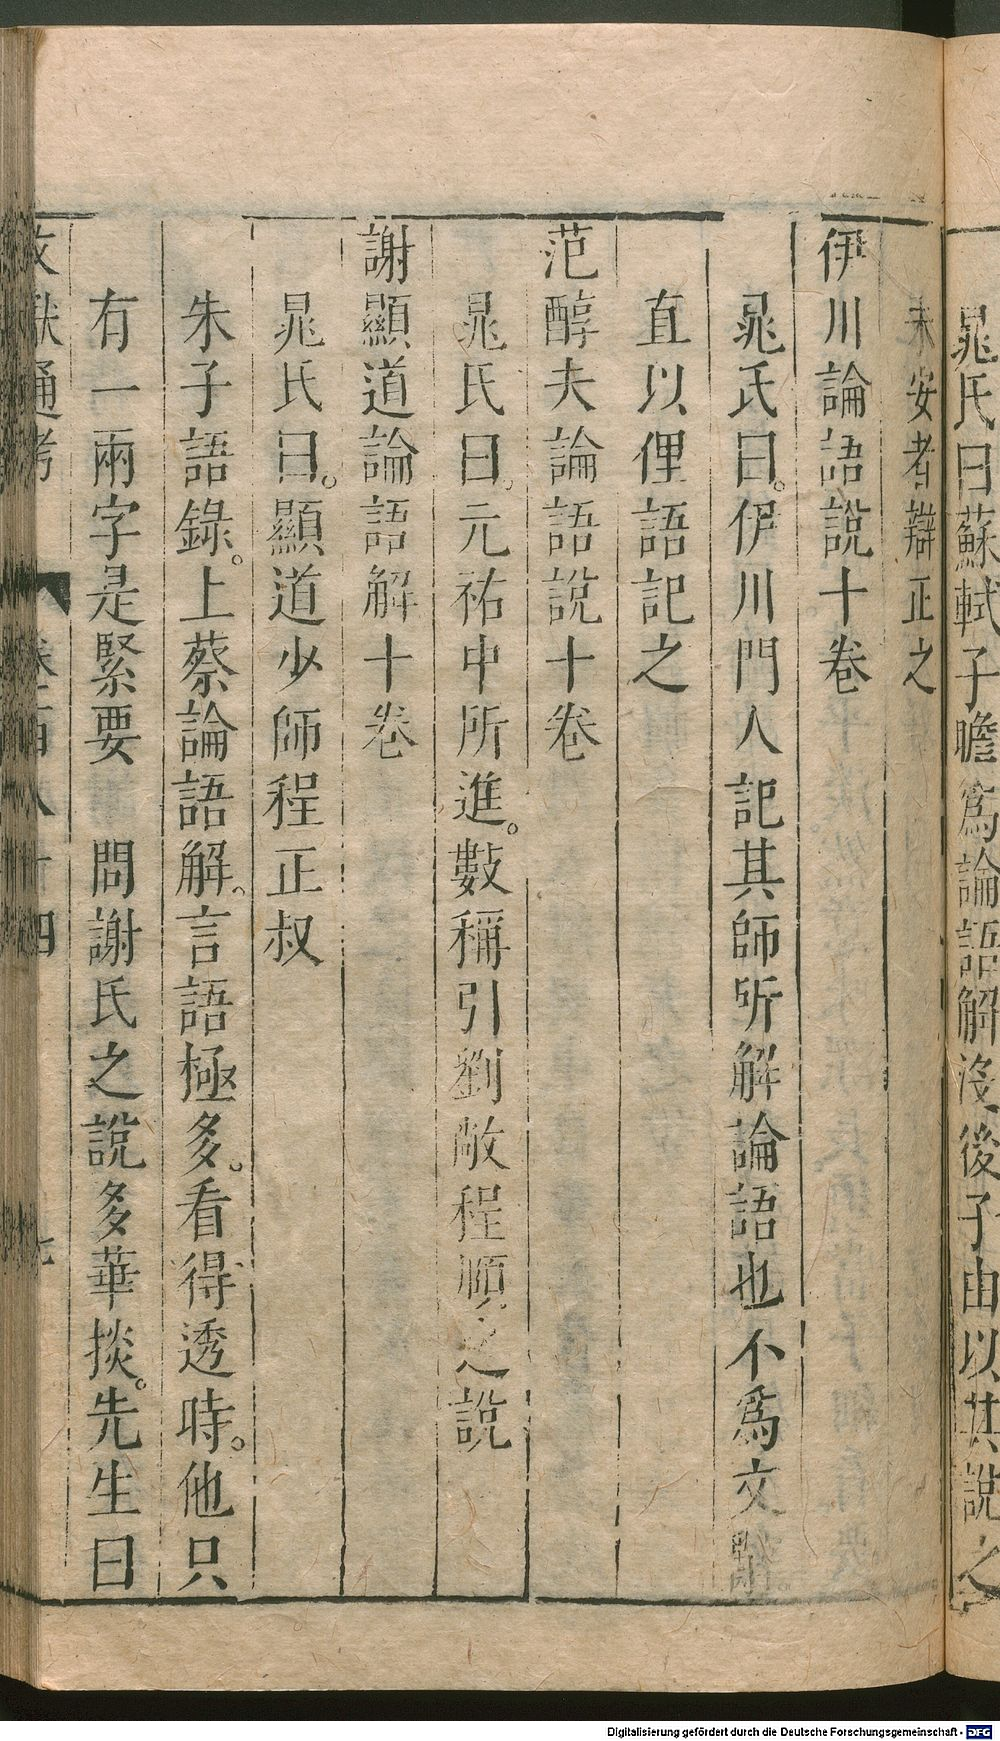 晁氏曰蘇軾子瞻爲論語解沒後子由以其說之
未安者辯正之
伊川論語說十卷
晁氏曰。伊川門人記其師所解論語也不爲文辭。
直以俚語記之
范醇夫論語說十卷
晁氏曰。元祐中所進。數稱引劉敞程頤之說
謝顯道論語解十卷
晁氏曰。顯道少師程正叔
朱子語錄。上蔡論語解。言語極多。看得透時。他只
有一兩字是緊要　問謝氏之說多華掞。先生曰
文獻通考　卷百八十四
Digitalisierung gefördert durch die Deutsche Forschungsgemeinschaft - DFG